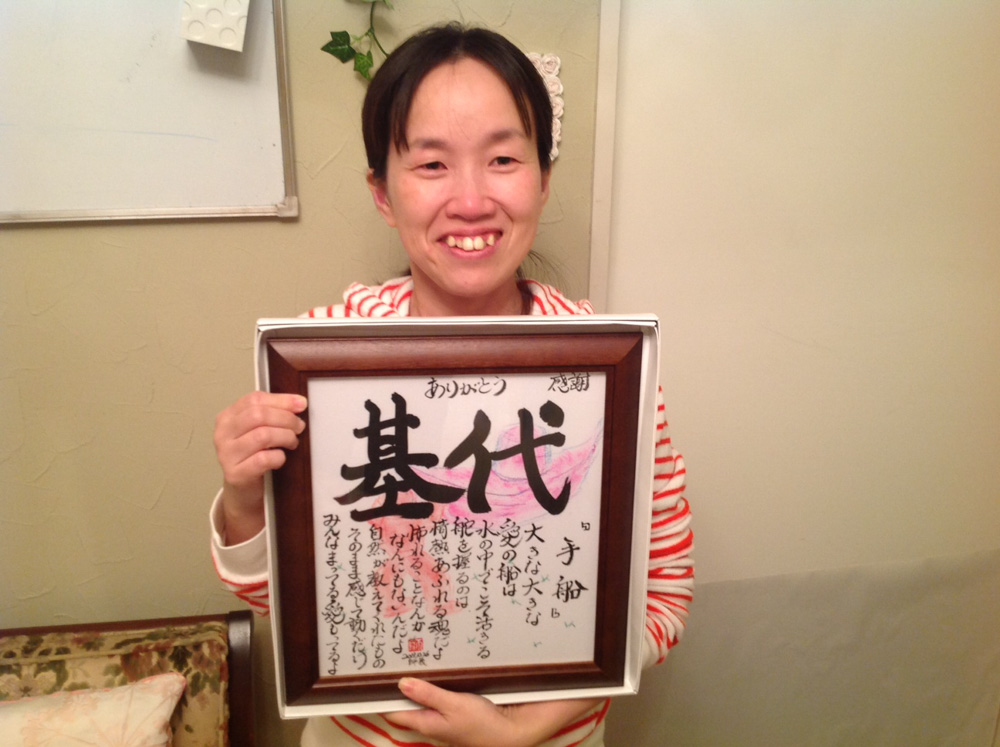 ありがとう 感謝
基代
『手船』
大きな大きな
愛の船は
水の中でこそ活きる
舵を握るのは
情熱あふれる魂だよ
怖れることなんか
なんにもないんだよ
自然が教えてくれたもの
そのまま感じて動いたらいい
みんなまってる